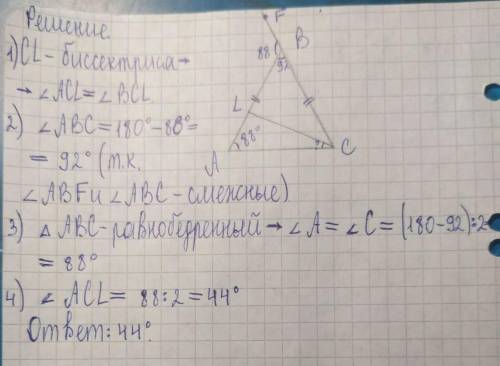 Решение.
1) CL - биссектриса →
→ ∠ACL = ∠BCL
2) ∠ABC = 180° - 88° =
= 92° (т.к.
∠ABF и ∠ABC - смежные)
3) △ ABC - равнобедренный → ∠A = ∠C = (180 - 92) : 2
= 88°
4) ∠ ACL = 88 : 2 = 44°
Ответ: 44°.
F
B
88
92
L
88°
A
C